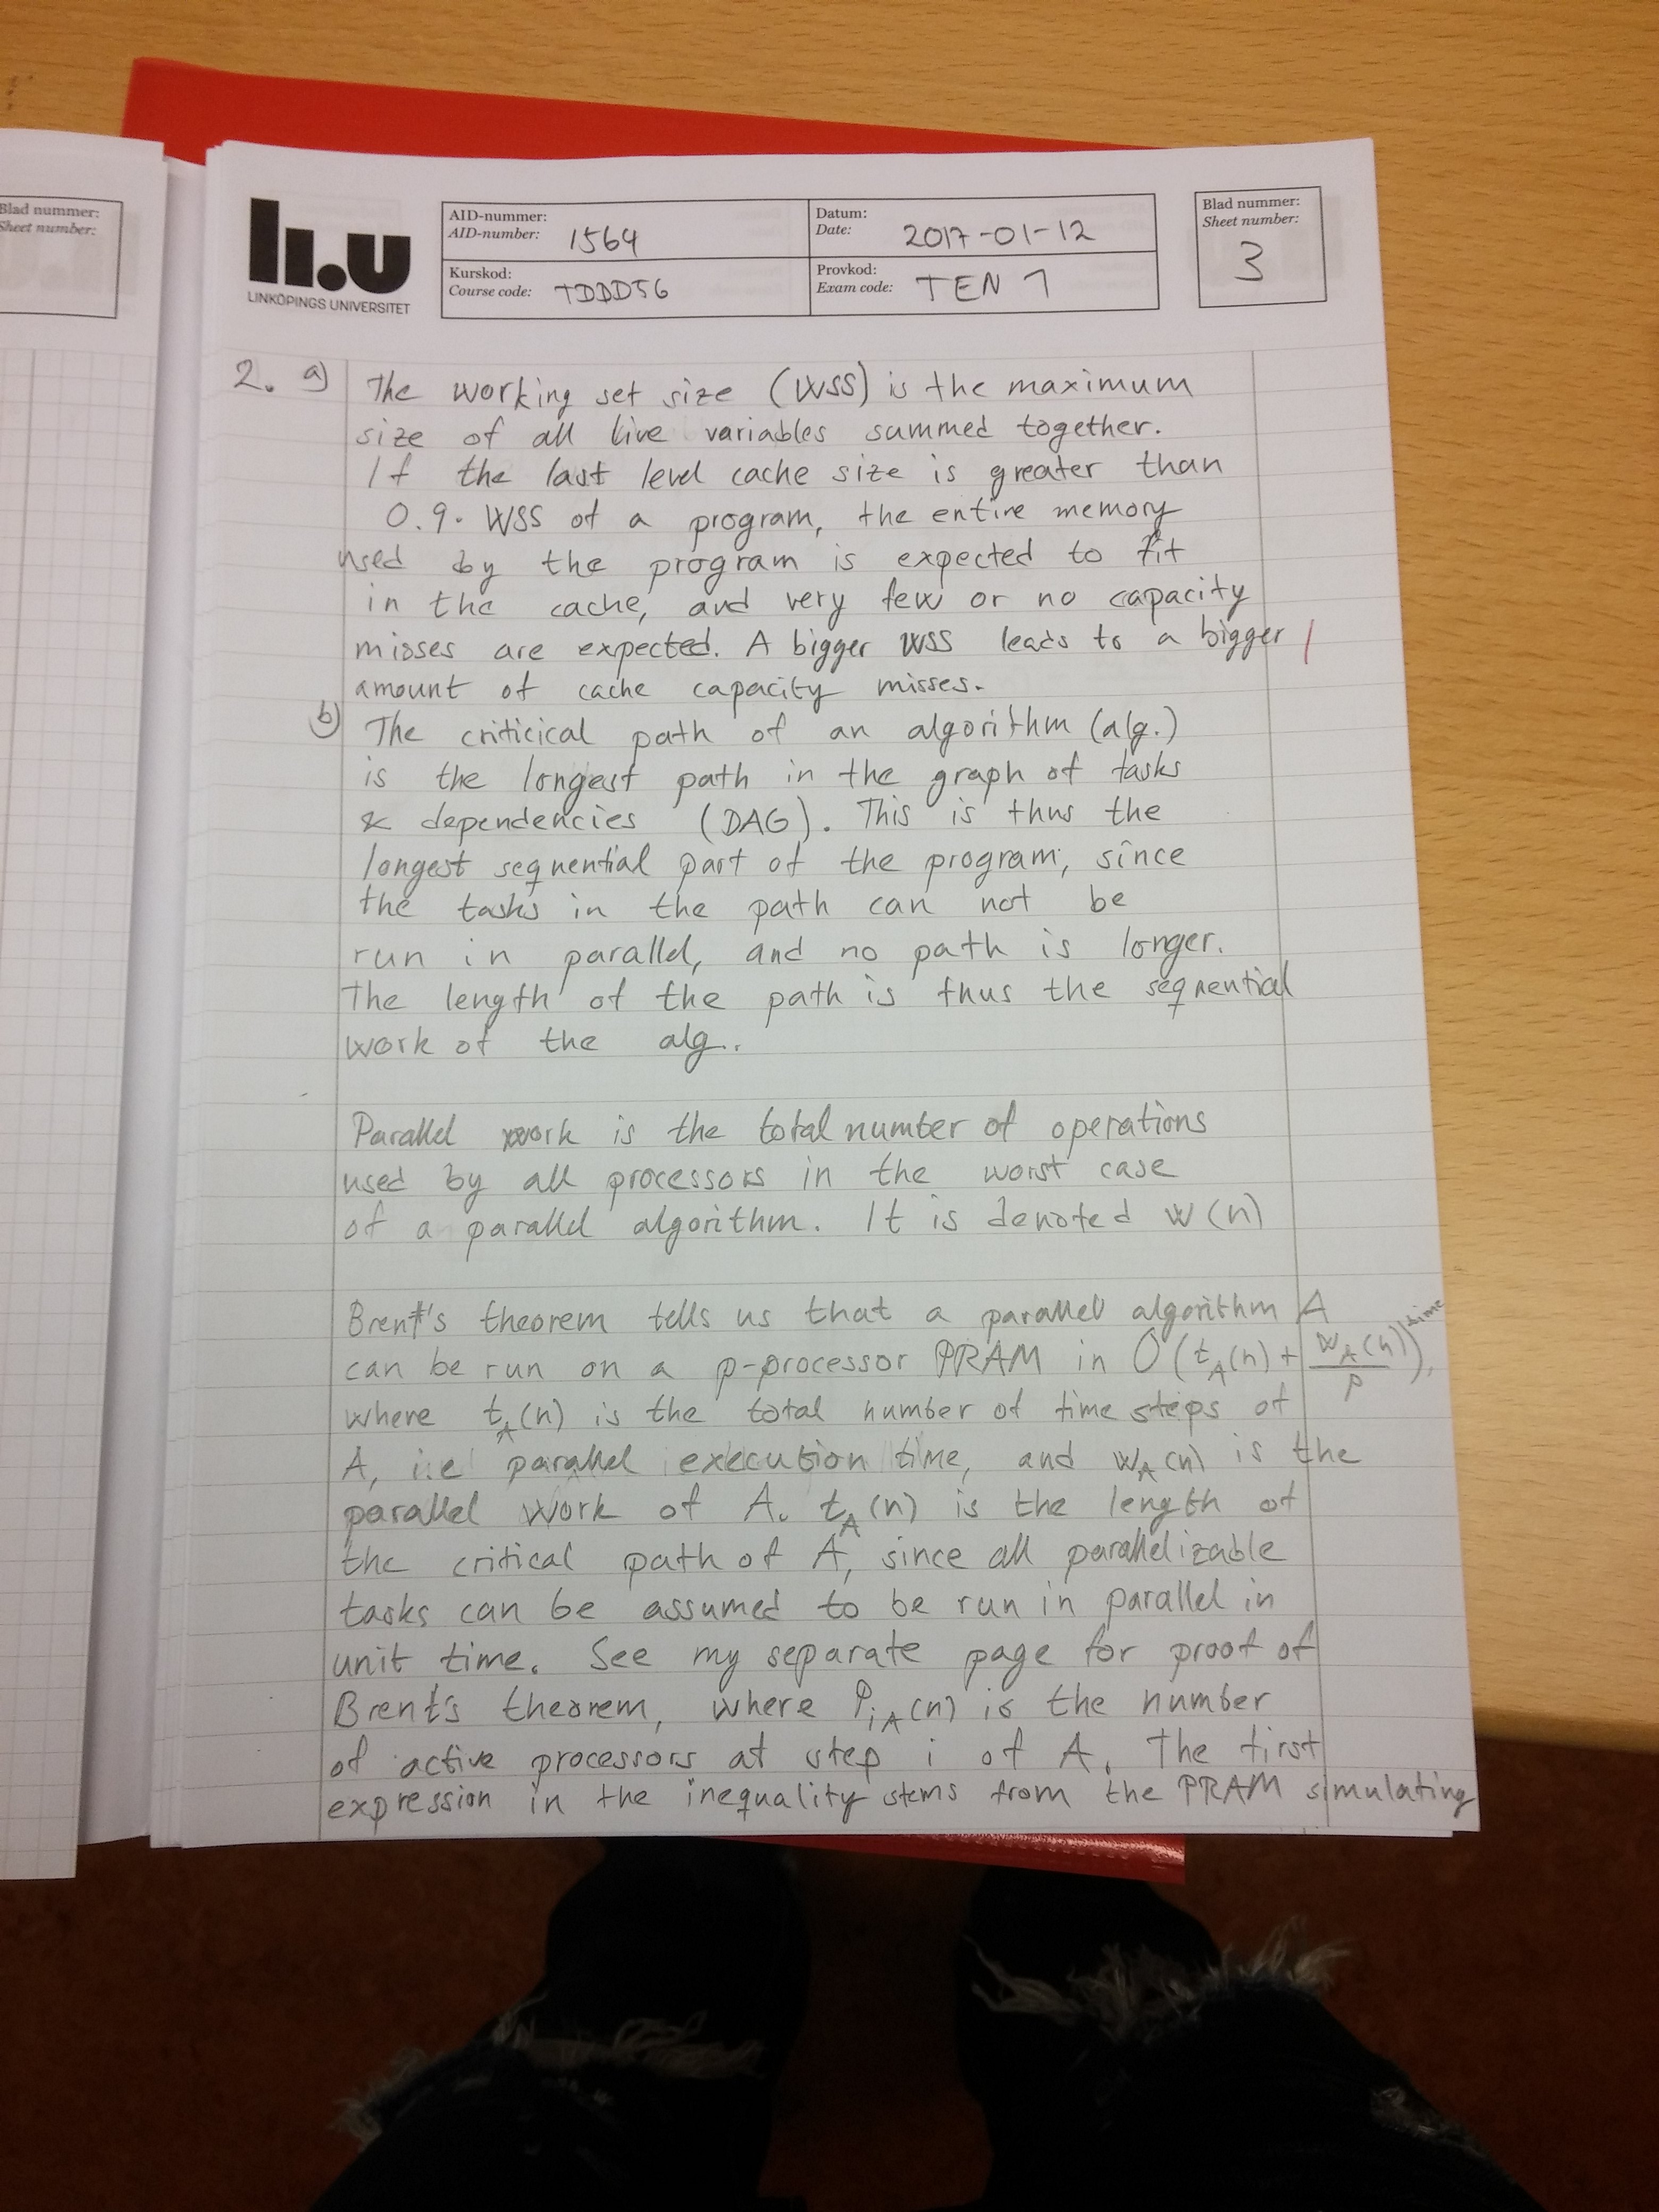 Blad nummer:
Sheet number:
li.u
LINKÖPINGS UNIVERSITET
AID-nummer:
AID-number: 1564
Datum:
Date: 2017-01-12
Blad nummer:
Sheet number:
3
Kurskod:
Course code: TDDD56
Provkod:
Exam code: TEN 1
2. a) The working set size (WSS) is the maximum
size of all live variables summed together.
If the last level cache size is greater than
0.9. WSS of a program, the entire memory
used by the program is expected to fit
in the cache, and very few or no capacity
misses are expected. A bigger WSS leads to a bigger
amount of cache capacity misses.
b) The criticical path of an algorithm (alg.)
is the longest path in the graph of tasks
& dependencies (DAG). This is thus the
longest sequential part of the program, since
the tasks in the path can not be
run in parallel, and no path is longer.
The length of the path is thus the sequential
work of the alg..
Parallel work is the total number of operations
used by all processors in the worst case
of a parallel algorithm. It is denoted w(n)
Brent's theorem tells us that a parallel algorithm A
can be run on a p-processor PRAM in O(t_A(n) + w_A(n)/p) time,
where t_A(n) is the total number of time steps of
A, i.e parallel execution time, and w_A(n) is the
parallel work of A. t_A(n) is the length of
the critical path of A, since all parallelizable
tasks can be assumed to be run in parallel in
unit time. See my separate page for proof of
Brent's theorem, where P_iA(n) is the number
of active processors at step i of A. The first
expression in the inequality stems from the PRAM simulating